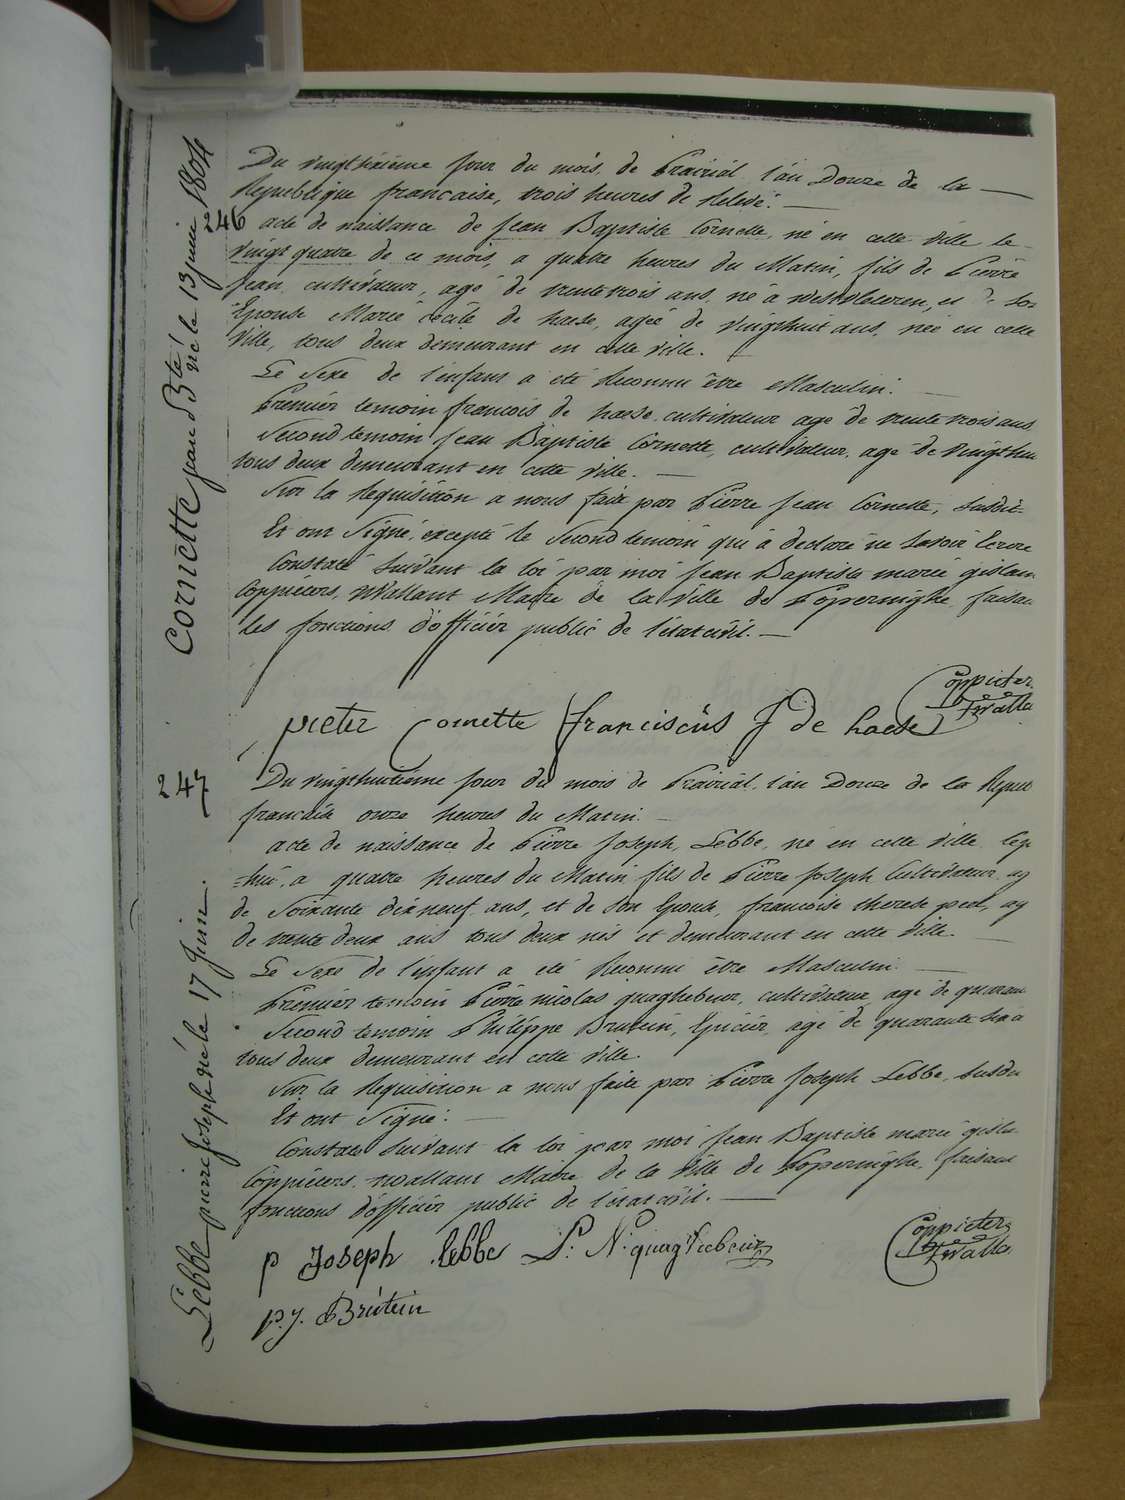 Cornette jean Bte né le 13 juin 1804
246
Du vingtsixieme jour du mois de Prairial l'an Douze de la
Republique française, trois heures de Relevé.
acte de naissance de Jean Baptiste Cornette, né en cette ville le
vingt quatre de ce mois, a quatre heures du Matin, fils de Pierre
Jean cultivateur, agé de trente trois ans, né à westvleteren, et de son
Epouse Marie cecile de haese, agée de vingthuit ans, née en cette
ville, tous deux demeurant en cette ville.
Le Sexe de l'enfant a été Reconnu être Masculin.
Premier temoin francois de haese cultivateur agé de trente trois ans
Second temoin Jean Baptiste Cornette, cultivateur, agé de vingthui
tous deux demeurant en cette ville.
Sur la Requisition a nous faite par Pierre Jean Cornette, susdit
Et ont Signé, excepté le second temoin qui à declaré ne savoir Ecrire
Constaté suivant la loi par moi Jean Baptiste marie gislain
Coppieters, wallant Maire de la Ville de Poperinghe faisan
les fonctions d'officier public de l'état civil.
pieter Cornette franciscus J de haese Coppieters
twalla
247
Lebbe pierre Joseph né le 17 Juin.
Du vingthuitieme jour du mois de Prairial, l'an Douze de la Repub
francaise onze heures du Matin.
acte de naissance de Pierre Joseph Lebbe, né en cette ville
=hui, a quatre heures du Matin fils de Pierre Joseph Cultivateur, ag
de Soixante dix neuf ans, et de Son Epouse, francoise therese peel, ag
de trente deux ans tous deux nés et demeurant en cette ville.
Le Sexe de l'enfant a été Reconnu être Masculin.
Premier temoin Pierre nicolas quaghebeur, cultivateur agé de quaran
Second temoin Philippe Brutein, Epicier, agé de quarante six a
tous deux demeurant en cette ville.
Sur la Requisition a nous faite par Pierre Joseph Lebbe, susdit
Et ont Signé.
Constaté suivant la loi par moi Jean Baptiste marie gisla
Coppieters wallant Maire de la Ville de Poperinghe, faisant
fonctions d'officier public de l'état civil.
p Joseph lebbe P: N: quaghebeur Coppieters
twalla
p.j. Brutein